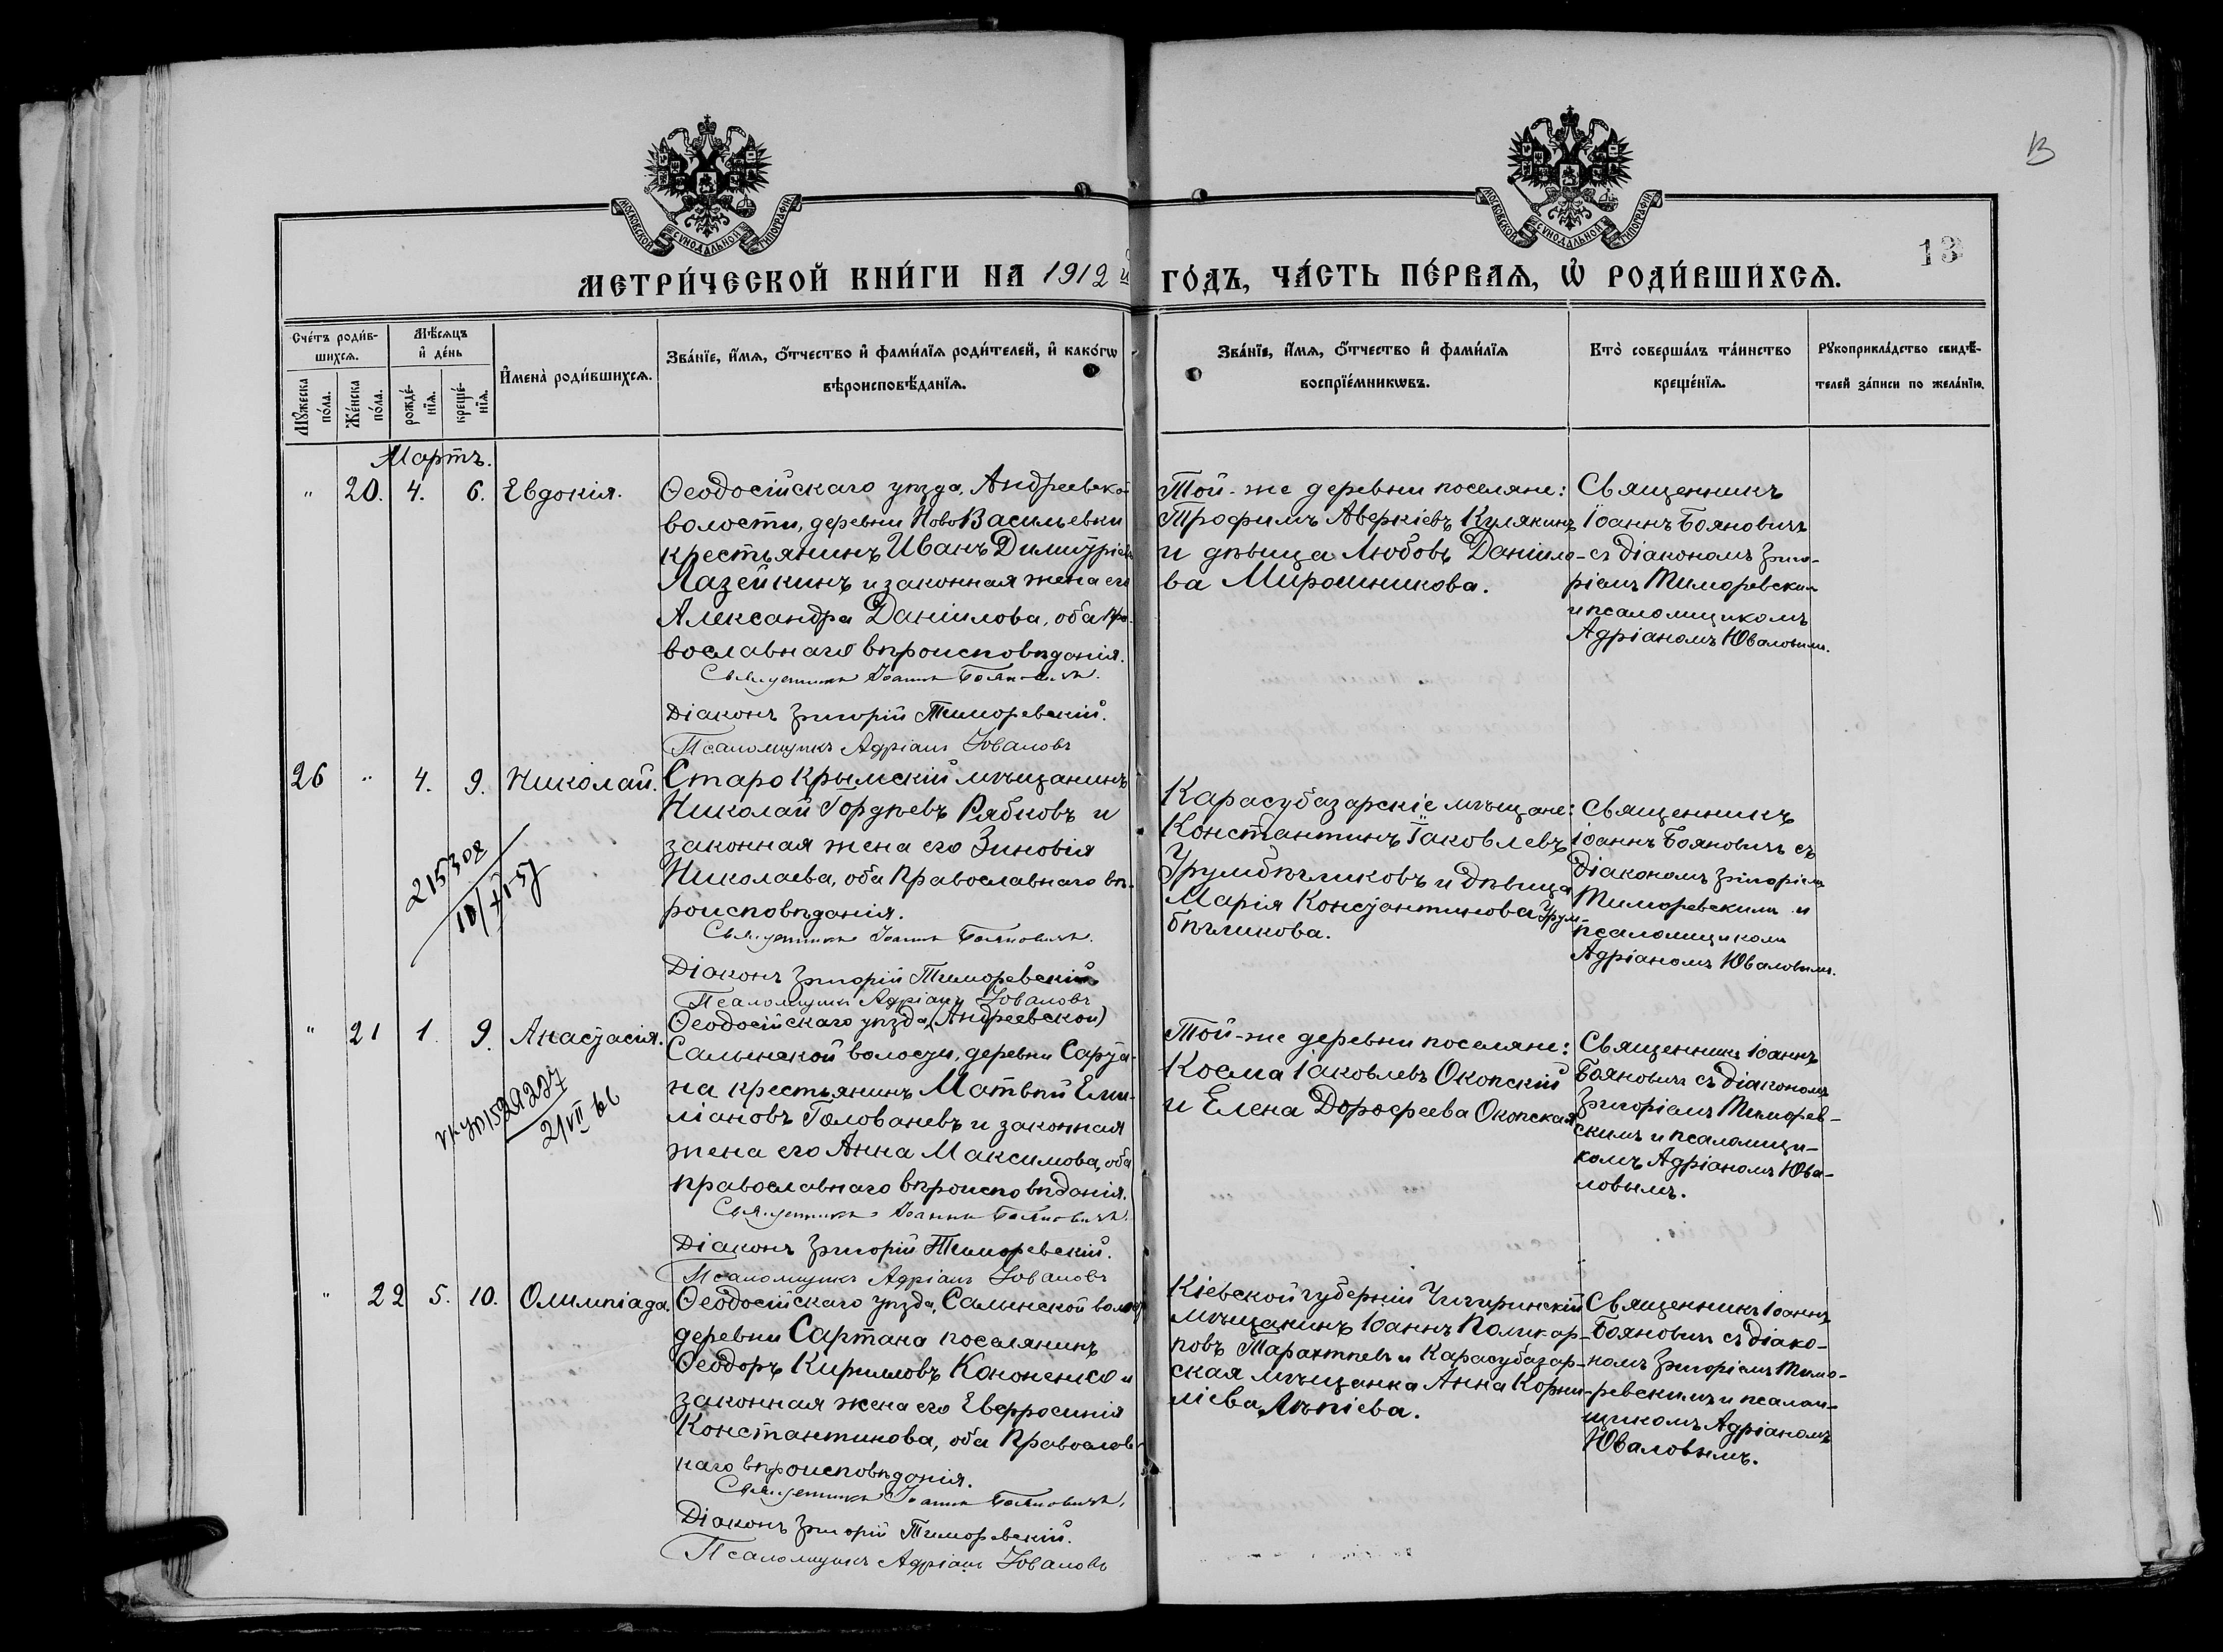 13
13
МОСКОВСКОЙ СѴНОДАЛЬНОЙ ТИПОГРАФІИ
МОСКОВСКОЙ СѴНОДАЛЬНОЙ ТИПОГРАФІИ
МЕТРИ́ЧЕСКОЙ КНИ́ГИ НА 1912 й ГО́ДЪ, ЧА́СТЬ ПЕ́РВАѦ, Ѡ҆ РОДИ́ВШИХСѦ.
Сче́тъ роди́в-
шихсѧ.
Мꙋ́жеска
по́ла.
Же́нска
по́ла.
Мѣ́сѧцъ
и҆ де́нь
рожде́-
нїѧ.
креще́-
нїѧ.
И҆мена̀ роди́вшихсѧ.
Зва́нїе, и҆́мѧ, ѻ҆́тчество и҆ фами́лїѧ роди́телей, и҆ како́гѡ
вѣроисповѣ́данїѧ.
Зва́нїе, и҆́мѧ, ѻ҆́тчество и҆ фами́лїѧ
воспрїе́мникѡвъ.
Кто̀ соверша́лъ та́инство
креще́нїѧ.
Рꙋкоприкла́дство свидѣ́-
телей за́писи по жела́нїю.
Мартъ.
" 20. 4. 6. Евдокія.
Ѳеодосійскаго уѣзда, Андреевской
волости, деревни НовоВасильевки
крестьянинъ Иванъ Димитріевъ
Лазейкинъ и законная жена его
Александра Даніилова, оба пра-
вославнаго вѣроисповѣданія.
Священникъ Іоаннъ Бояновичъ.
Діаконъ Григорій Тиморевскій.
Псаломщикъ Адріанъ Юваловъ
Той-же деревни поселяне:
Трофимъ Аверкіевъ Кулякинъ
и дѣвица Любовь Даніило-
ва Мирошникова.
Священникъ
Іоаннъ Бояновичъ
съ діакономъ Григо-
ріемъ Тиморевскимъ
и псаломщикомъ
Адріаномъ Юваловымъ.
26 " 4. 9. Николай.
215308
Старо Крымскій мѣщанинъ
Николай Гордѣевъ Рябковъ и
законная жена его Зиновія
Николаева, оба Православнаго вѣ-
роисповѣданія.
Священникъ Іоаннъ Бояновичъ.
Діаконъ Григорій Тиморевскій
Псаломщикъ Адріанъ Юваловъ
Карасубазарскіе мѣщане:
Константинъ Іаковлевъ
Урумбѣликовъ и дѣвица
Марія Константинова Урум-
бѣликова.
Священникъ
Іоаннъ Бояновичъ съ
Діакономъ Григоріемъ
Тиморевскимъ и
псаломщикомъ
Адріаномъ Юваловымъ.
" 21 1. 9. Анастасія.
21/VII 66
Ѳеодосійскаго уѣзда, (Андреевской)
Салынской волости, деревни Сарта-
на крестьянинъ Матвѣй Еми-
ліановъ Голованевъ и законная
жена его Анна Максимова, оба
православнаго вѣроисповѣданія.
Священникъ Іоаннъ Бояновичъ.
Діаконъ Григорій Тиморевскій.
Псаломщикъ Адріанъ Юваловъ
Той-же деревни поселяне:
Косма Іаковлевъ Окопскій
и Елена Дорофеева Окопская
Священникъ Іоаннъ
Бояновичъ съ діакономъ
Григоріемъ Тиморев-
скимъ и псаломщи-
комъ Адріаномъ Юва-
ловымъ.
" 22 5. 10. Олимпіада.
Ѳеодосійскаго уѣзда, Салынской волости
деревни Сартана поселянинъ
Ѳеодоръ Кирилловъ Кононенко и
законная жена его Евфросинія
Константинова, оба Православ-
наго вѣроисповѣданія.
Священникъ Іоаннъ Бояновичъ.
Діаконъ Григорій Тиморевскій.
Псаломщикъ Адріанъ Юваловъ
Кіевской губерніи Чигиринскій
мѣщанинъ Іоаннъ Поликар-
повъ Тарахтѣевъ и Карасубазар-
ская мѣщанка Анна Корни-
ліева
Священникъ Іоаннъ
Бояновичъ съ діако-
номъ Григоріемъ Тимо-
ревскимъ и псалом-
щикомъ Адріаномъ
Юваловымъ.